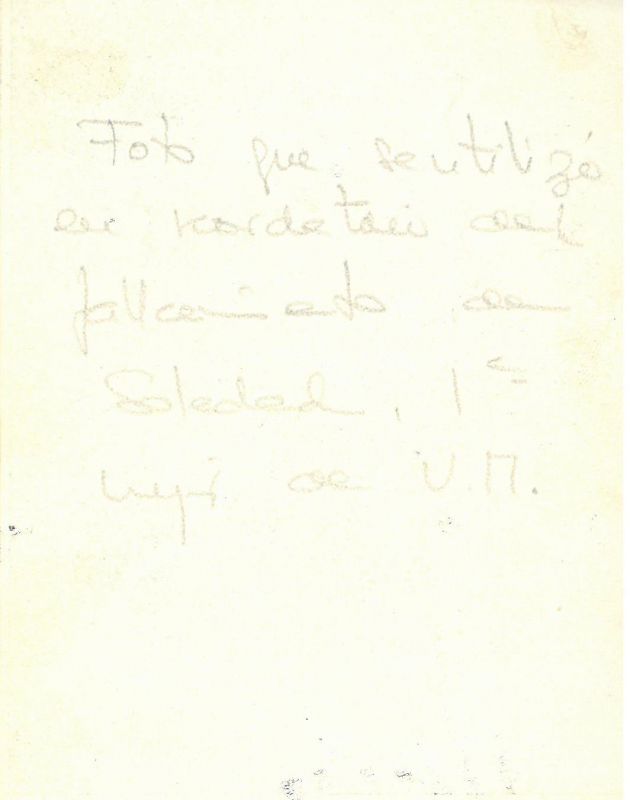 Foto que se utilizó
en recordatorio del
fallecimiento de
Soledad, 1ª
mujer de V.M.